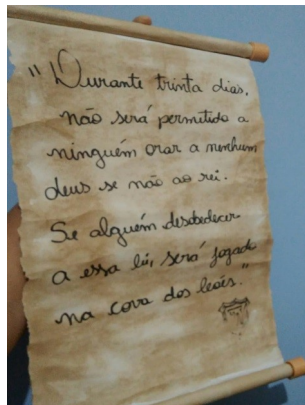 "Durante trinta dias,
não será permitido a
ninguém orar a nenhum
deus se não ao rei.
Se alguém desobedecer
a essa lei, será jogado
na cova dos leões."